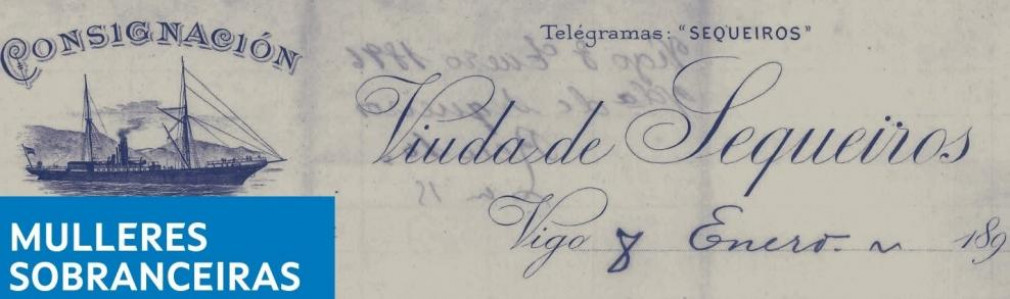 CONSIGNACIÓN
Telégramas: "SEQUEIROS"
Viuda de Sequeiros
Vigo 8 Enero. 189
MULLERES
SOBRANCEIRAS